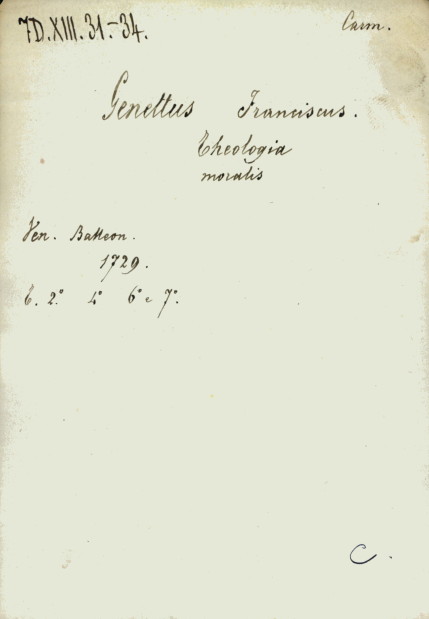 7D.XIII.31-34.
Carm.
Genettus Franciscus.
Theologia
moralis
Ven. Balleon.
1729.
T. 2° 4° 6° e 7°.
C.